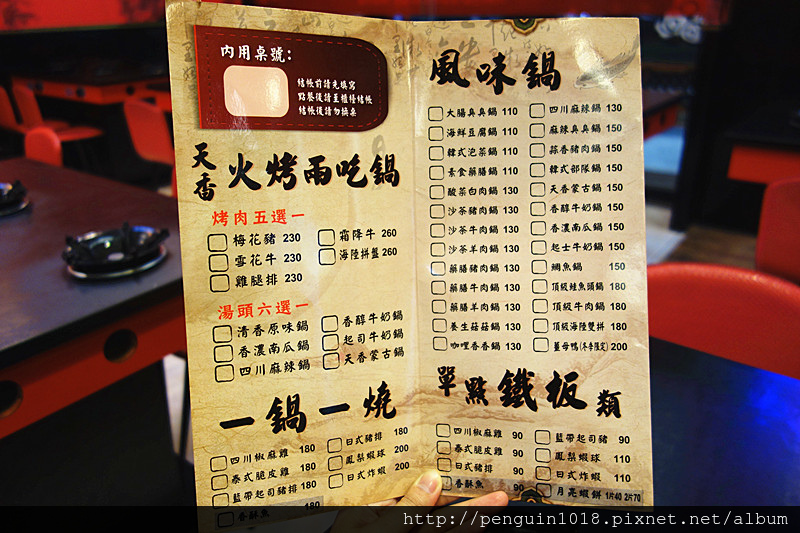 內用桌號:
結帳前請先填寫
點餐後請至櫃檯結帳
結帳後請勿換桌
天香 火烤兩吃鍋
烤肉五選一
梅花豬 230
雪花牛 230
雞腿排 230
霜降牛 260
海陸拼盤 260
湯頭六選一
清香原味鍋
香濃南瓜鍋
四川麻辣鍋
香醇牛奶鍋
起司牛奶鍋
天香蒙古鍋
一鍋一燒
四川椒麻雞 180
泰式脆皮雞 180
藍帶起司豬排 180
香酥魚 180
日式豬排 180
鳳梨蝦球 200
日式炸蝦 200
風味鍋
大腸臭臭鍋 110
海鮮豆腐鍋 110
韓式泡菜鍋 110
素食藥膳鍋 110
酸菜白肉鍋 130
沙茶豬肉鍋 130
沙茶牛肉鍋 130
沙茶羊肉鍋 130
藥膳豬肉鍋 130
藥膳牛肉鍋 130
藥膳羊肉鍋 130
養生菇菇鍋 130
咖哩香香鍋 130
四川麻辣鍋 130
麻辣臭臭鍋 150
蒜香豬肉鍋 150
韓式部隊鍋 150
天香蒙古鍋 150
香醇牛奶鍋 150
香濃南瓜鍋 150
起士牛奶鍋 150
鯛魚鍋 150
頂級鮭魚頭鍋 180
頂級牛肉鍋 180
頂級海陸雙拼 180
薑母鴨(冬季限定) 200
單點鐵板類
四川椒麻雞 90
泰式脆皮雞 90
日式豬排 90
香酥魚 90
藍帶起司豬 90
鳳梨蝦球 110
日式炸蝦 110
月亮蝦餅 1片40 2片70
http://penguin1018.pixnet.net/album